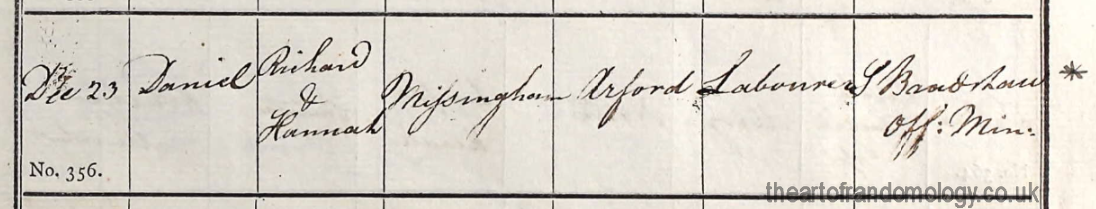 Dec 23 Daniel Richard & Hannah Missingham Arford Labourer S Bradshaw Off: Min:
No. 356.
theartofrandomology.co.uk